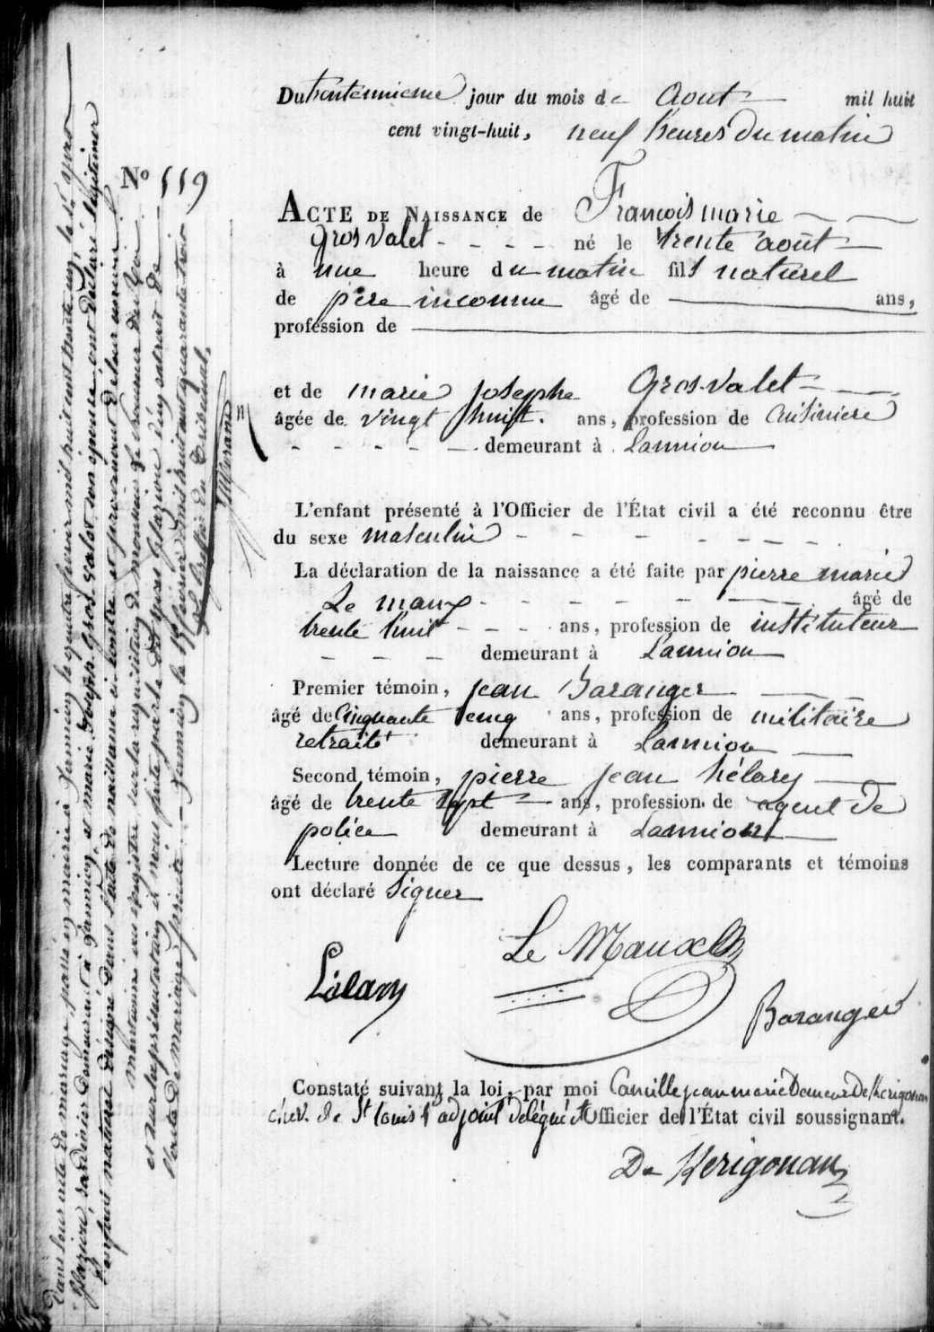 Du trenteunieme jour du mois de Aout mil huit
cent vingt-huit, neuf heures du matin
N° 119
ACTE DE NAISSANCE de François marie
Grosvalet né le trente août
à une heure du matin fils naturel
de père inconnu âgé de ans,
profession de
et de marie Josephe Grosvalet
âgée de vingt huit ans, profession de Cuisinière
demeurant à Lannion
L'enfant présenté à l'Officier de l'État civil a été reconnu être
du sexe masculin
La déclaration de la naissance a été faite par pierre marie
Le maux âgé de
trente huit ans, profession de instituteur
demeurant à Lannion
Premier témoin, jean Baranger
âgé de Cinquante cinq ans, profession de militaire
retraité demeurant à Lannion
Second témoin, pierre jean hélary
âgé de trente sept ans, profession de agent de
police demeurant à Lannion
Lecture donnée de ce que dessus, les comparants et témoins
ont déclaré Signer
Le Maux
Baranger
Constaté suivant la loi, par moi Camille jean marie De Kerigonan
de St louis l'adjoint délégué Officier de l'État civil soussignant.
De Kerigonan
Dans leur acte de mariage passé en mairie à Lannion le quatre janvier mil huit cent trente un, le
jardinier demeurant à Lannion et marie Joseph Gros valet son épouse ont déclaré légitimer
l'enfant naturel désigné dans l'acte de naissance ci contre et provenant de leur union
mentionné au registre sur la réquisition de monsieur le Procureur du Roi
et sur la présentation à nous faite par le extrait de
l'acte de mariage précité. Lannion le 15 février mil huit cent quarante trois
Le Greffier du Tribunal,